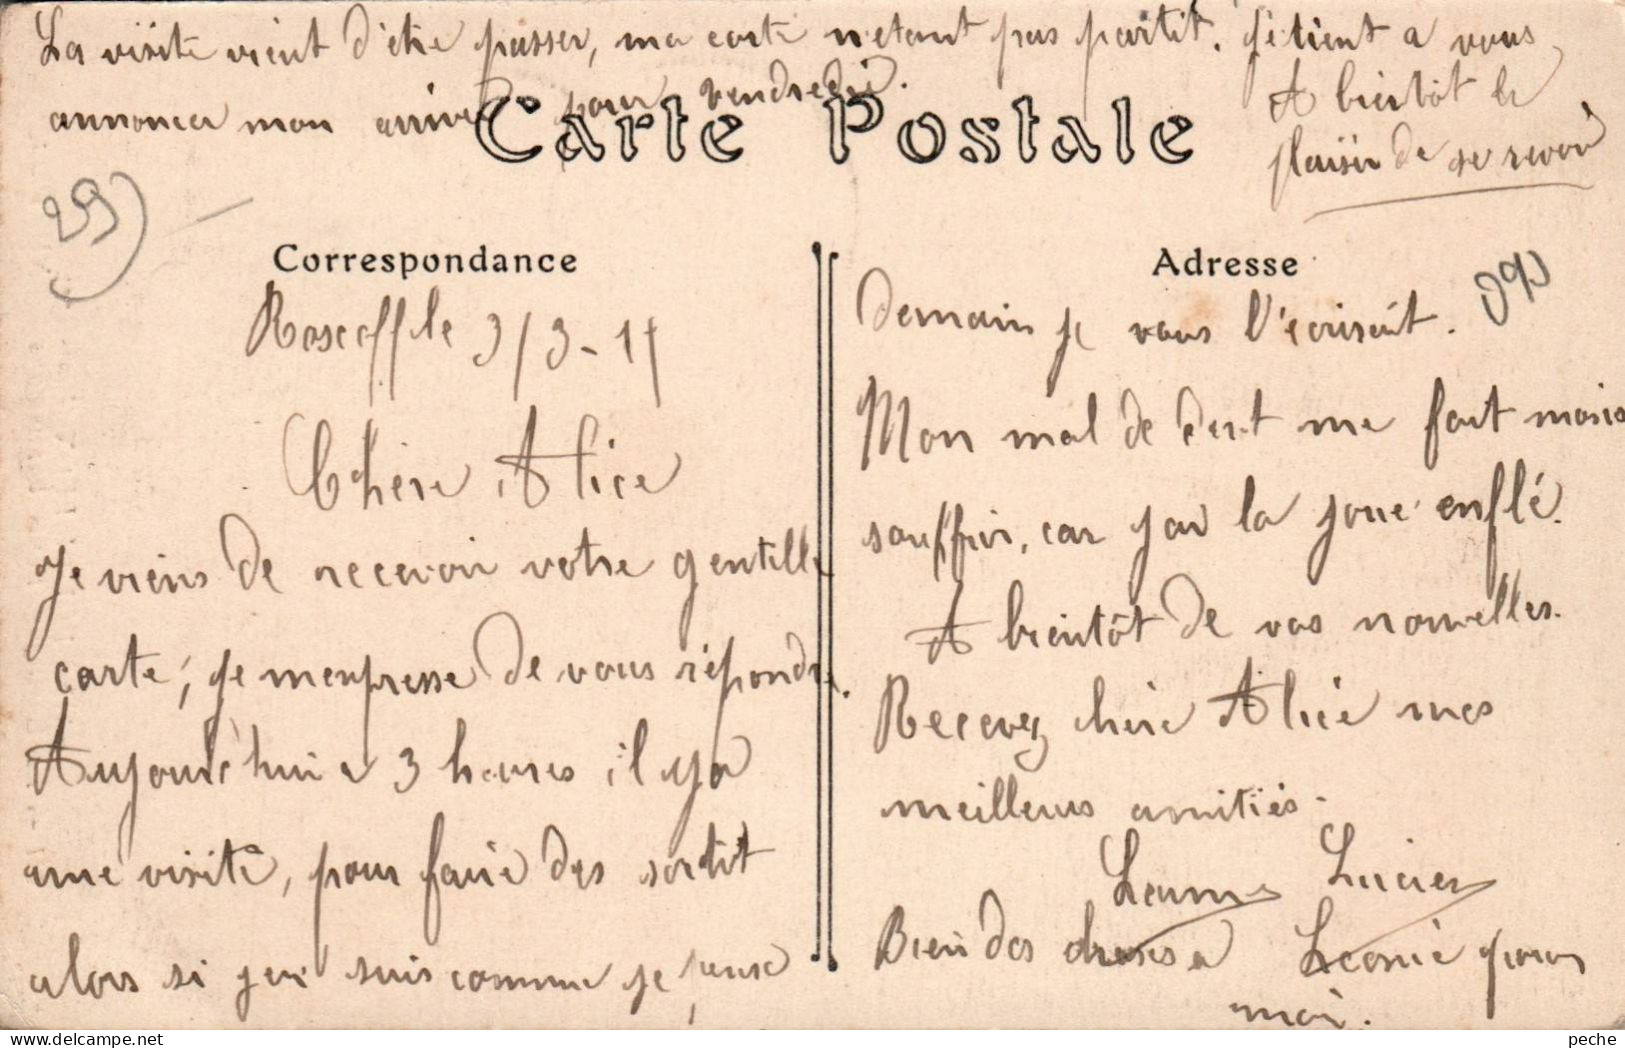 La visite vient d'être passer, ma carte n'etant pas partit. je tient a vous
annoncer mon arrivé pour vendredie.
A bientôt le
plaisir de se revoir
Carte Postale
29)
Correspondance
Adresse
Roscoff le 3/3-17
Chère Alice
Je viens de recevoir votre gentille
carte, je m'enpresse de vous répondre.
Aujourd'hui a 3 heures il y a
une visite, pour faire des sortit
alors si j'en suis comme je pense
demain je vous l'ecriserait.
Mon mal de dent me fait moins
souffrir, car j'ai la joue enflé.
A bientôt de vos nouvelles.
Recevez chère Alice mes
meilleurs amitiés.
Lucien
Bien des choses a Léonie pour
moi.
peche